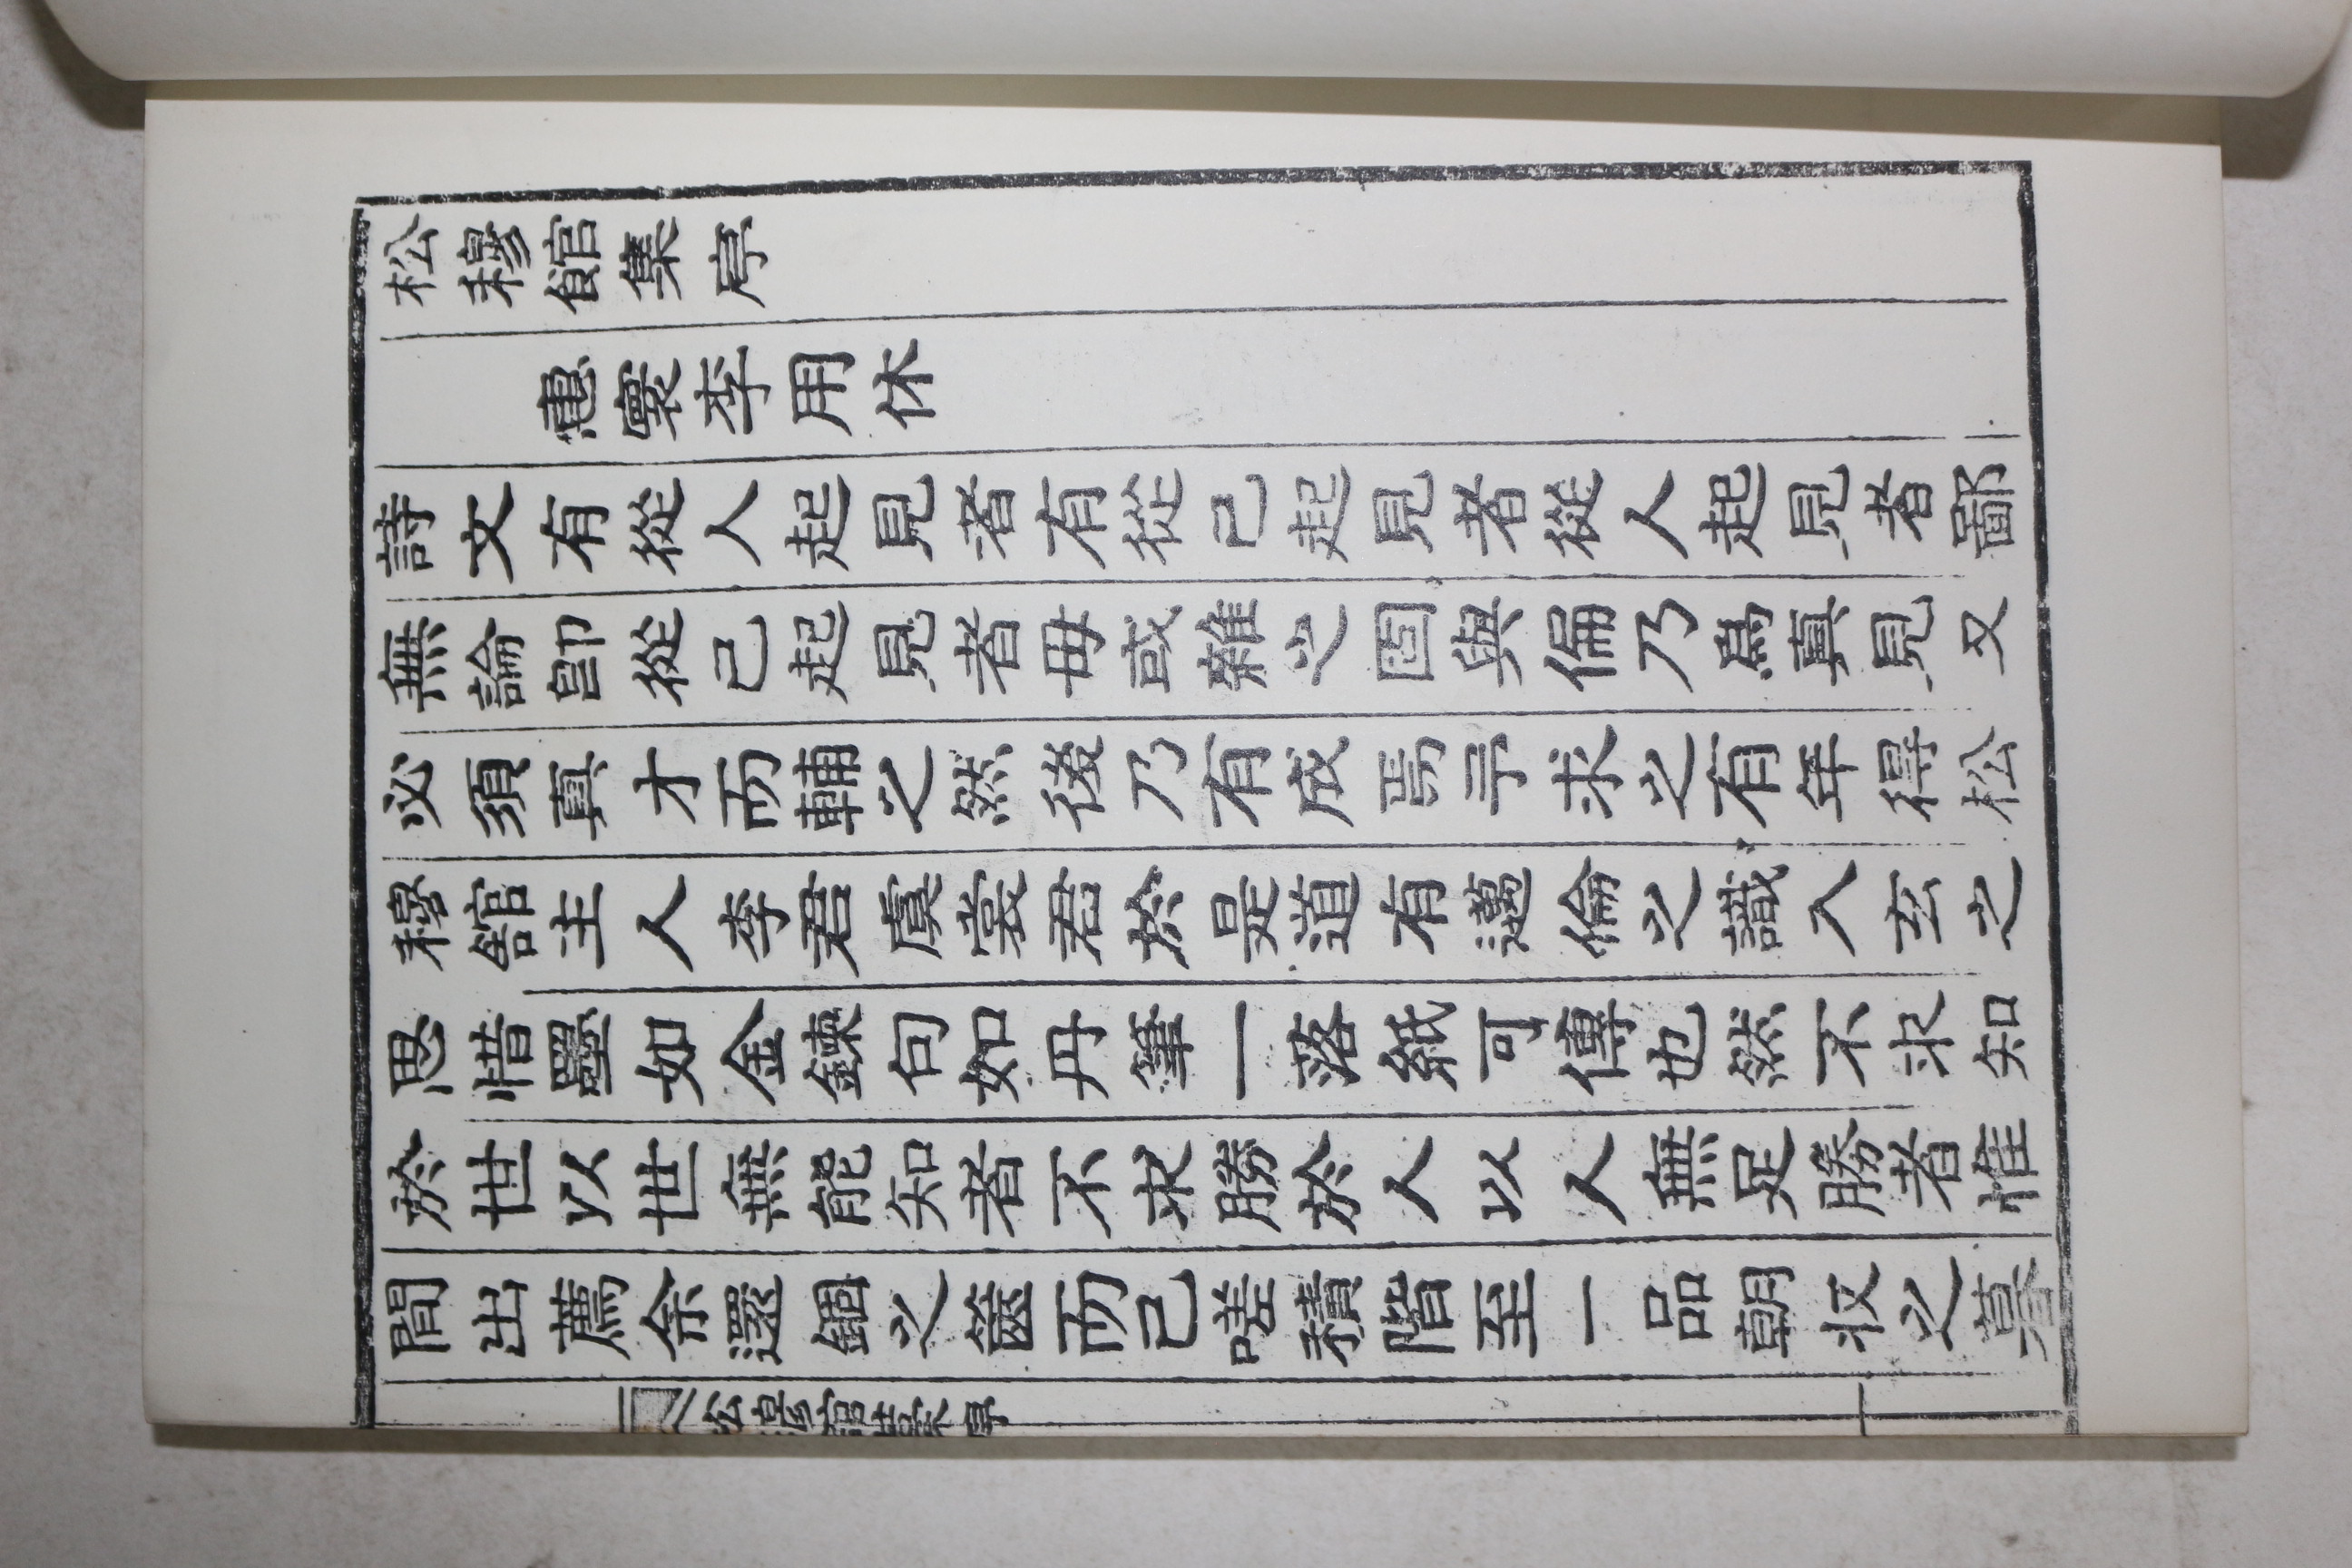 松穆館集序
惠寰李用休
詩文有從人起見者有從己起見者從人起見者鄙
無論卽從己起見者毋或雜之固與偏乃爲真見又
必須真才而輔之然後乃有成焉予求之有年得松
穆館主人李君虞裳君於是道有邁倫之識入玄之
思惜墨如金鍊句如丹筆一落紙可傳也然不求知
於世以世無能知者不求勝於人以人無足勝者惟
間出薦余還錮之篋而已嗟積階至一品朝収之暮
松穆館集序
一